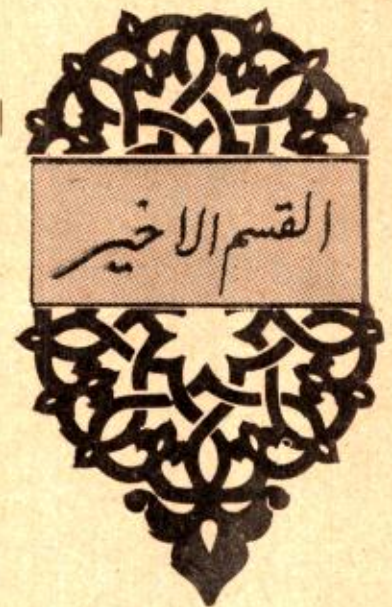 القسم الاخير